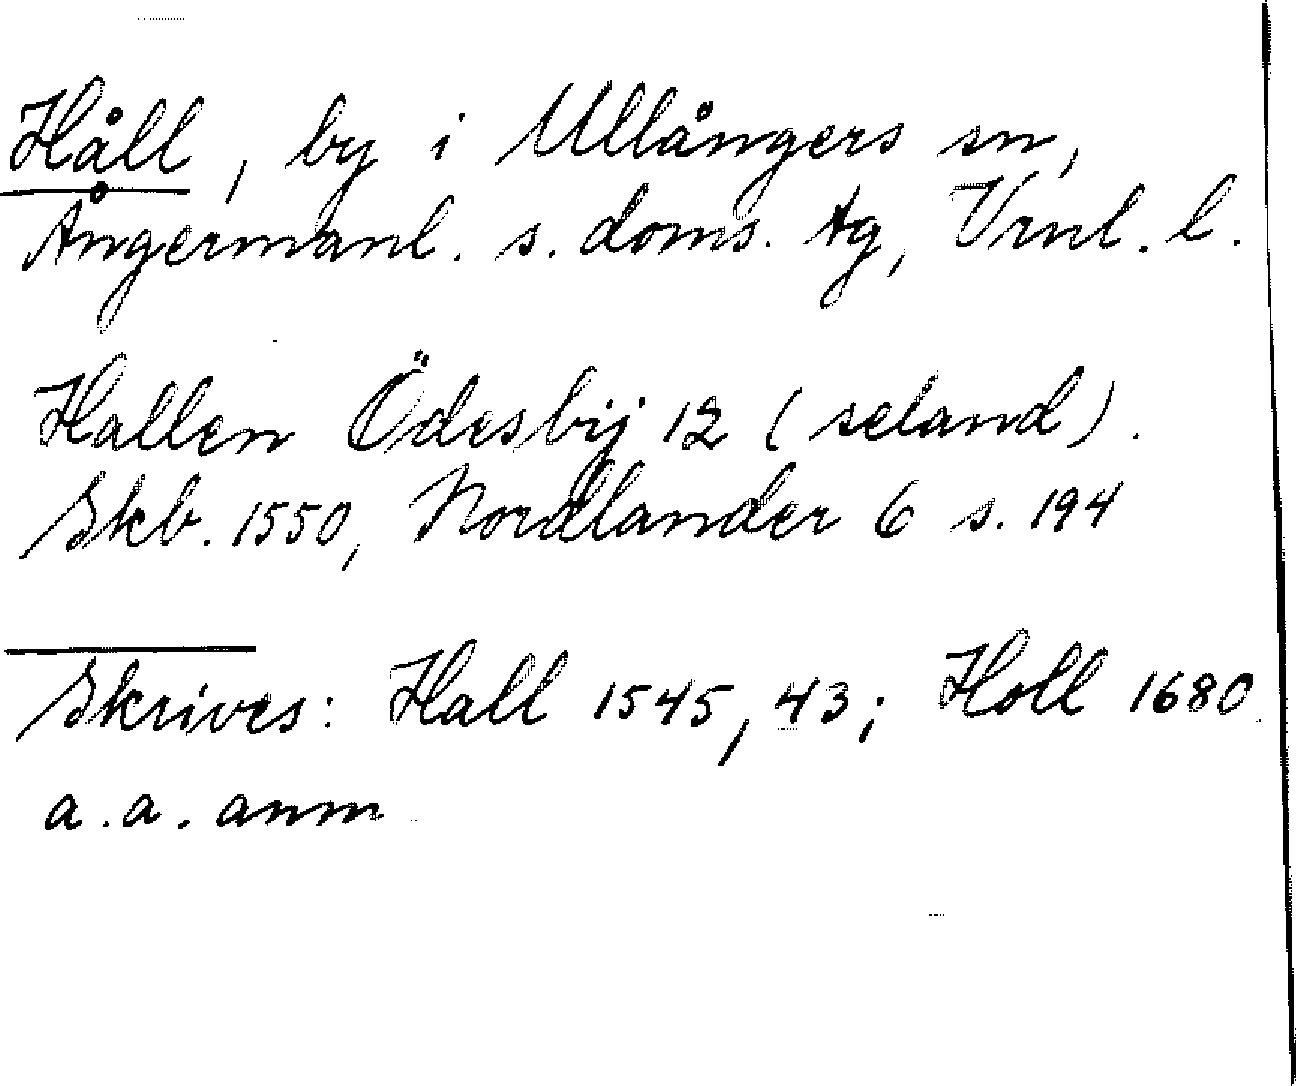 Håll, by i Ullångers sn,
Ångermanl. s. doms. tg, Vrnl. l.
Hallen Ödesbij 12 (seland).
Skb. 1550, Nordlander 6 s. 194
Skrives: Hall 1545, 43; Holl 1680
a.a. anm